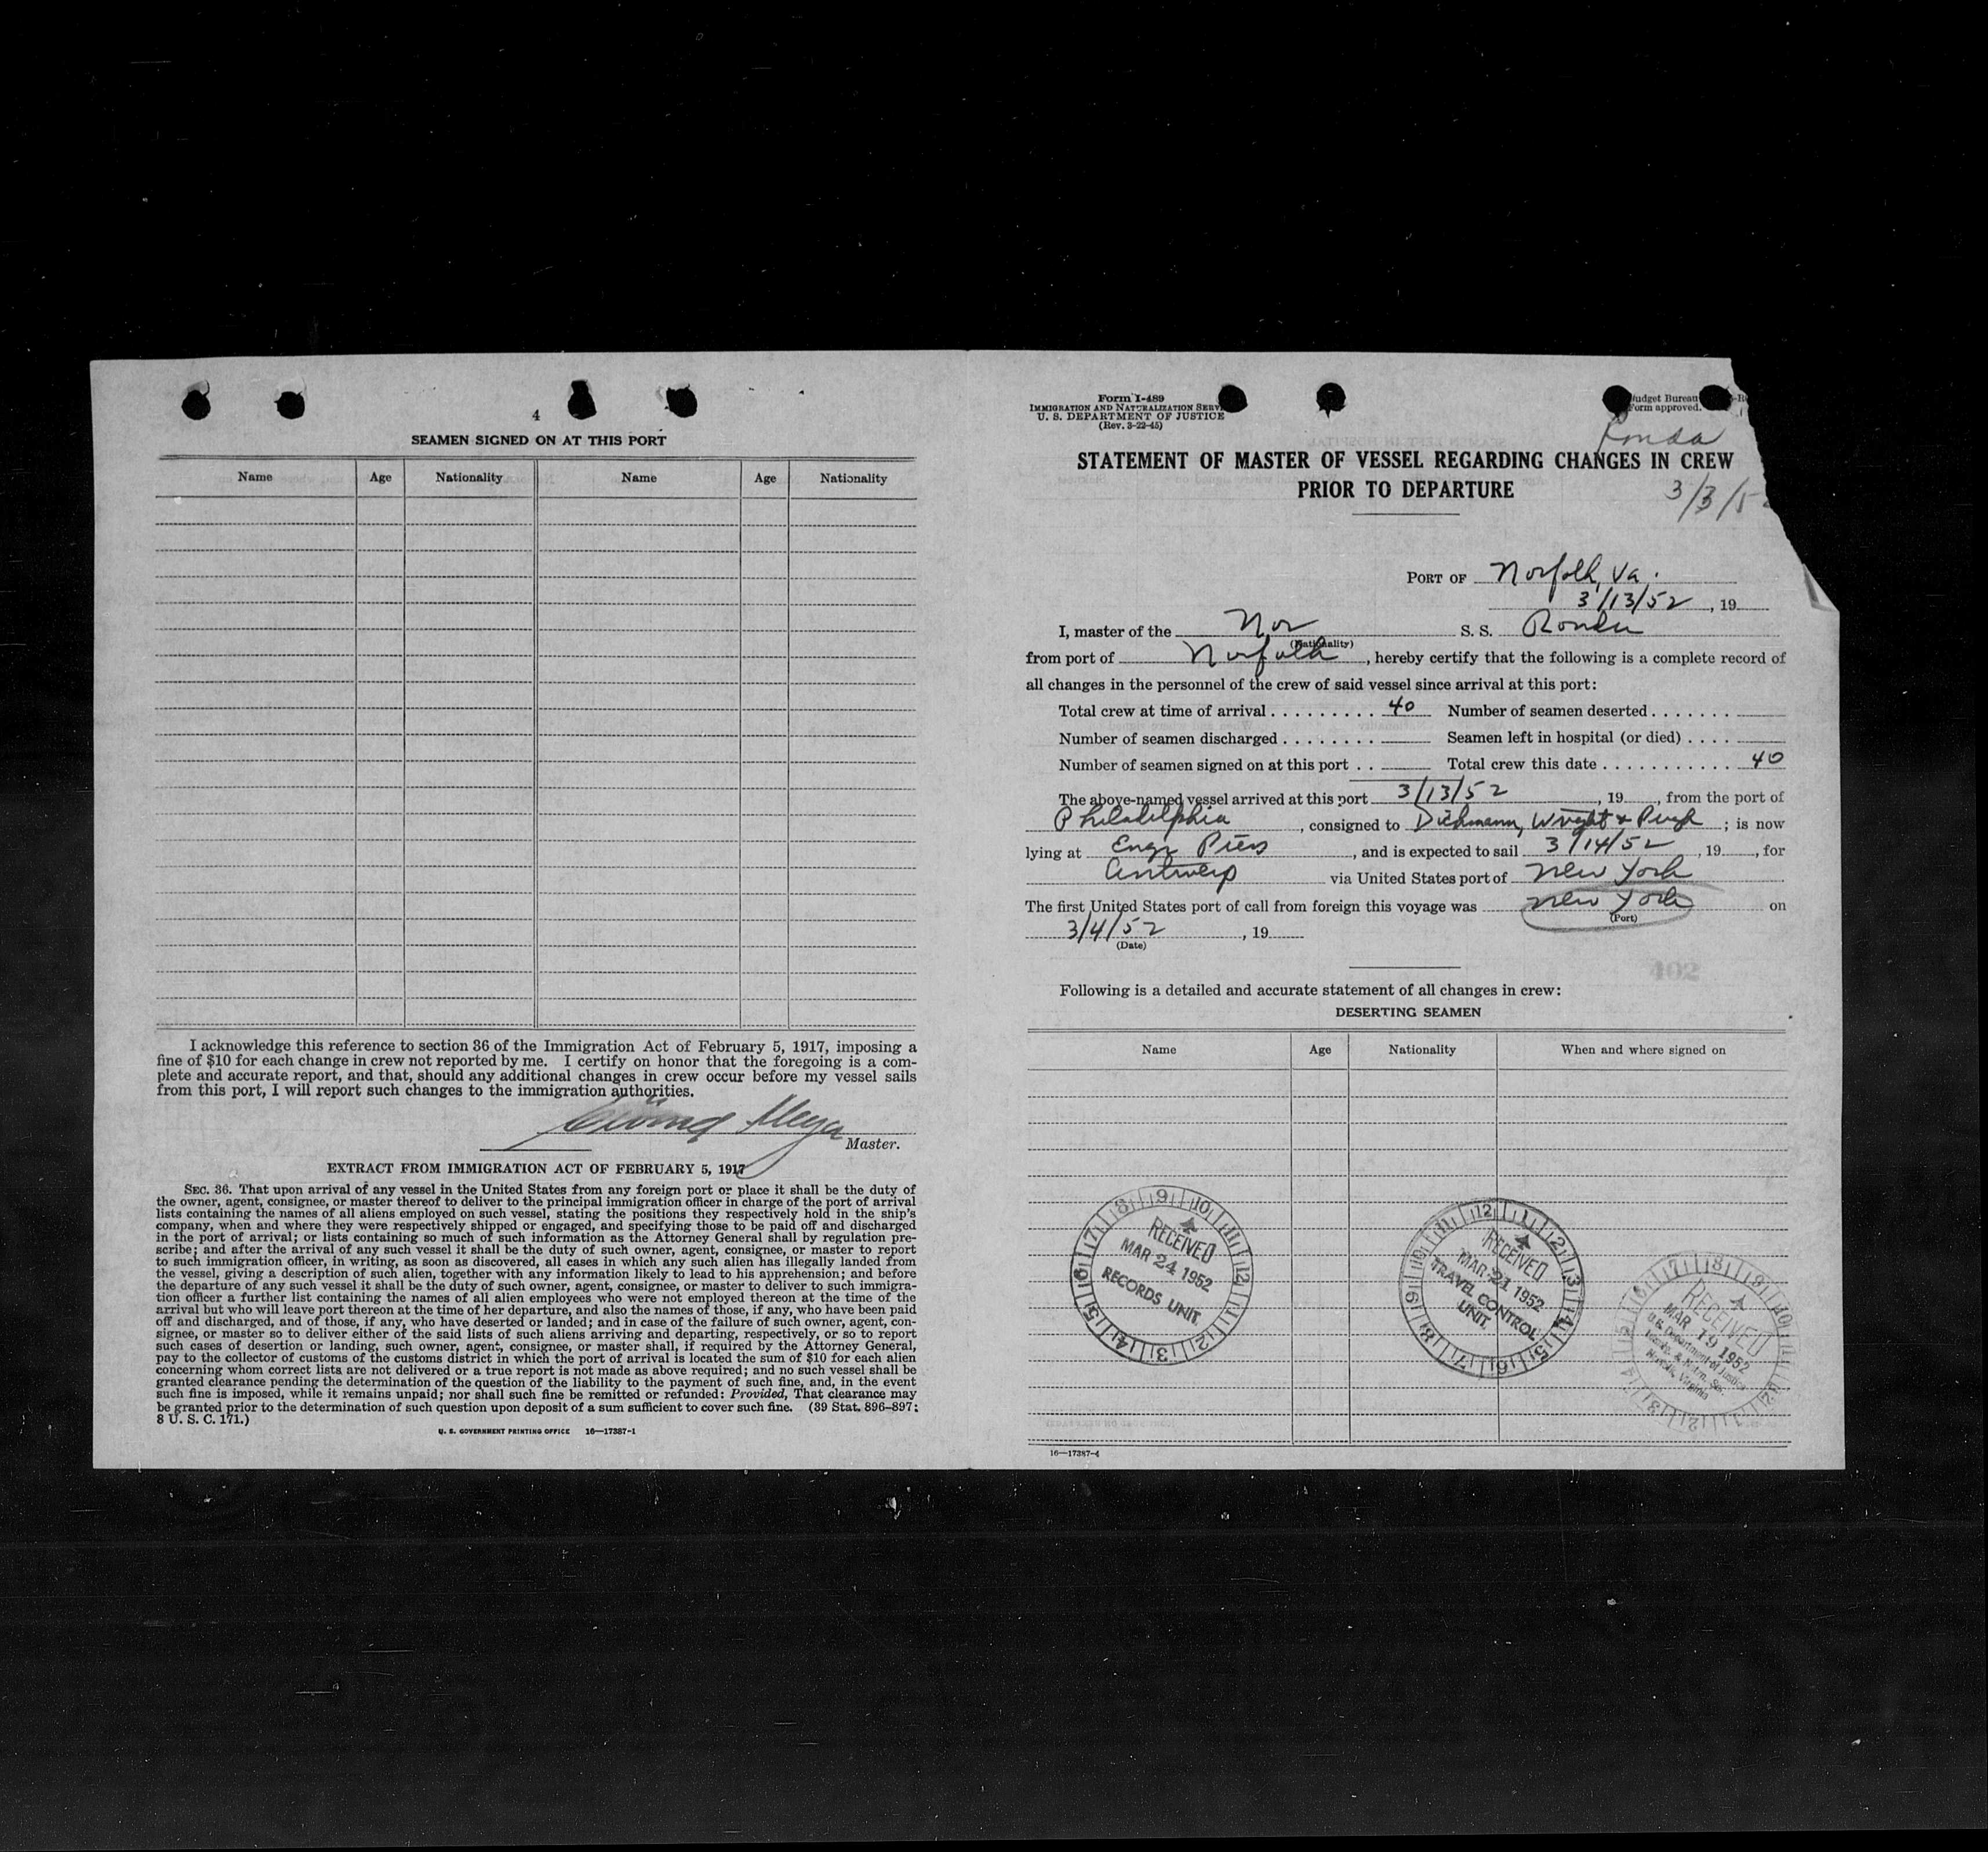 4
SEAMEN SIGNED ON AT THIS PORT
Name Age Nationality Name Age Nationality
I acknowledge this reference to section 36 of the Immigration Act of February 5, 1917, imposing a
fine of $10 for each change in crew not reported by me. I certify on honor that the foregoing is a com-
plete and accurate report, and that, should any additional changes in crew occur before my vessel sails
from this port, I will report such changes to the immigration authorities.
Master.
EXTRACT FROM IMMIGRATION ACT OF FEBRUARY 5, 1917
SEC. 36. That upon arrival of any vessel in the United States from any foreign port or place it shall be the duty of
the owner, agent, consignee, or master thereof to deliver to the principal immigration officer in charge of the port of arrival
lists containing the names of all aliens employed on such vessel, stating the positions they respectively hold in the ship's
company, when and where they were respectively shipped or engaged, and specifying those to be paid off and discharged
in the port of arrival; or lists containing so much of such information as the Attorney General shall by regulation pre-
scribe; and after the arrival of any such vessel it shall be the duty of such owner, agent, consignee, or master to report
to such immigration officer, in writing, as soon as discovered, all cases in which any such alien has illegally landed from
the vessel, giving a description of such alien, together with any information likely to lead to his apprehension; and before
the departure of any such vessel it shall be the duty of such owner, agent, consignee, or master to deliver to such immigra-
tion officer a further list containing the names of all alien employees who were not employed thereon at the time of the
arrival but who will leave port thereon at the time of her departure, and also the names of those, if any, who have been paid
off and discharged, and of those, if any, who have deserted or landed; and in case of the failure of such owner, agent, con-
signee, or master so to deliver either of the said lists of such aliens arriving and departing, respectively, or so to report
such cases of desertion or landing, such owner, agent, consignee, or master shall, if required by the Attorney General,
pay to the collector of customs of the customs district in which the port of arrival is located the sum of $10 for each alien
concerning whom correct lists are not delivered or a true report is not made as above required; and no such vessel shall be
granted clearance pending the determination of the question of the liability to the payment of such fine, and, in the event
such fine is imposed, while it remains unpaid; nor shall such fine be remitted or refunded: Provided, That clearance may
be granted prior to the determination of such question upon deposit of a sum sufficient to cover such fine. (39 Stat. 896–897;
8 U. S. C. 171.)
U. S. GOVERNMENT PRINTING OFFICE 16—17387-1
Form I-489
IMMIGRATION AND NATURALIZATION SERV
U. S. DEPARTMENT OF JUSTICE
(Rev. 3-22-45)
udget Bureau
Form approved.
Ronda
STATEMENT OF MASTER OF VESSEL REGARDING CHANGES IN CREW
PRIOR TO DEPARTURE
3/3/5
PORT OF Norfolk, Va.
3/13/52, 19
I, master of the Nor S. S. Ronda
(Nationality)
from port of Norfolk, hereby certify that the following is a complete record of
all changes in the personnel of the crew of said vessel since arrival at this port:
Total crew at time of arrival . . . . . . . . . 40 Number of seamen deserted . . . . . . .
Number of seamen discharged . . . . . . . . Seamen left in hospital (or died) . . . .
Number of seamen signed on at this port . . Total crew this date . . . . . . . . . . . 40
The above-named vessel arrived at this port 3/13/52, 19, from the port of
Philadelphia, consigned to Dichmann, Wright & Pugh; is now
lying at Engr Piers, and is expected to sail 3/14/52, 19, for
Antwerp via United States port of New York
The first United States port of call from foreign this voyage was New York on
(Port)
3/4/52, 19
(Date)
402
Following is a detailed and accurate statement of all changes in crew:
DESERTING SEAMEN
Name Age Nationality When and where signed on
RECEIVED
MAR 24 1952
RECORDS UNIT.
RECEIVED
MAR 21 1952
TRAVEL CONTROL
UNIT.
RECEIVED
MAR 19 1952
U.S. Department of Justice
Immig. & Natrn. Ser.
Norfolk, Virginia
16—17387-4